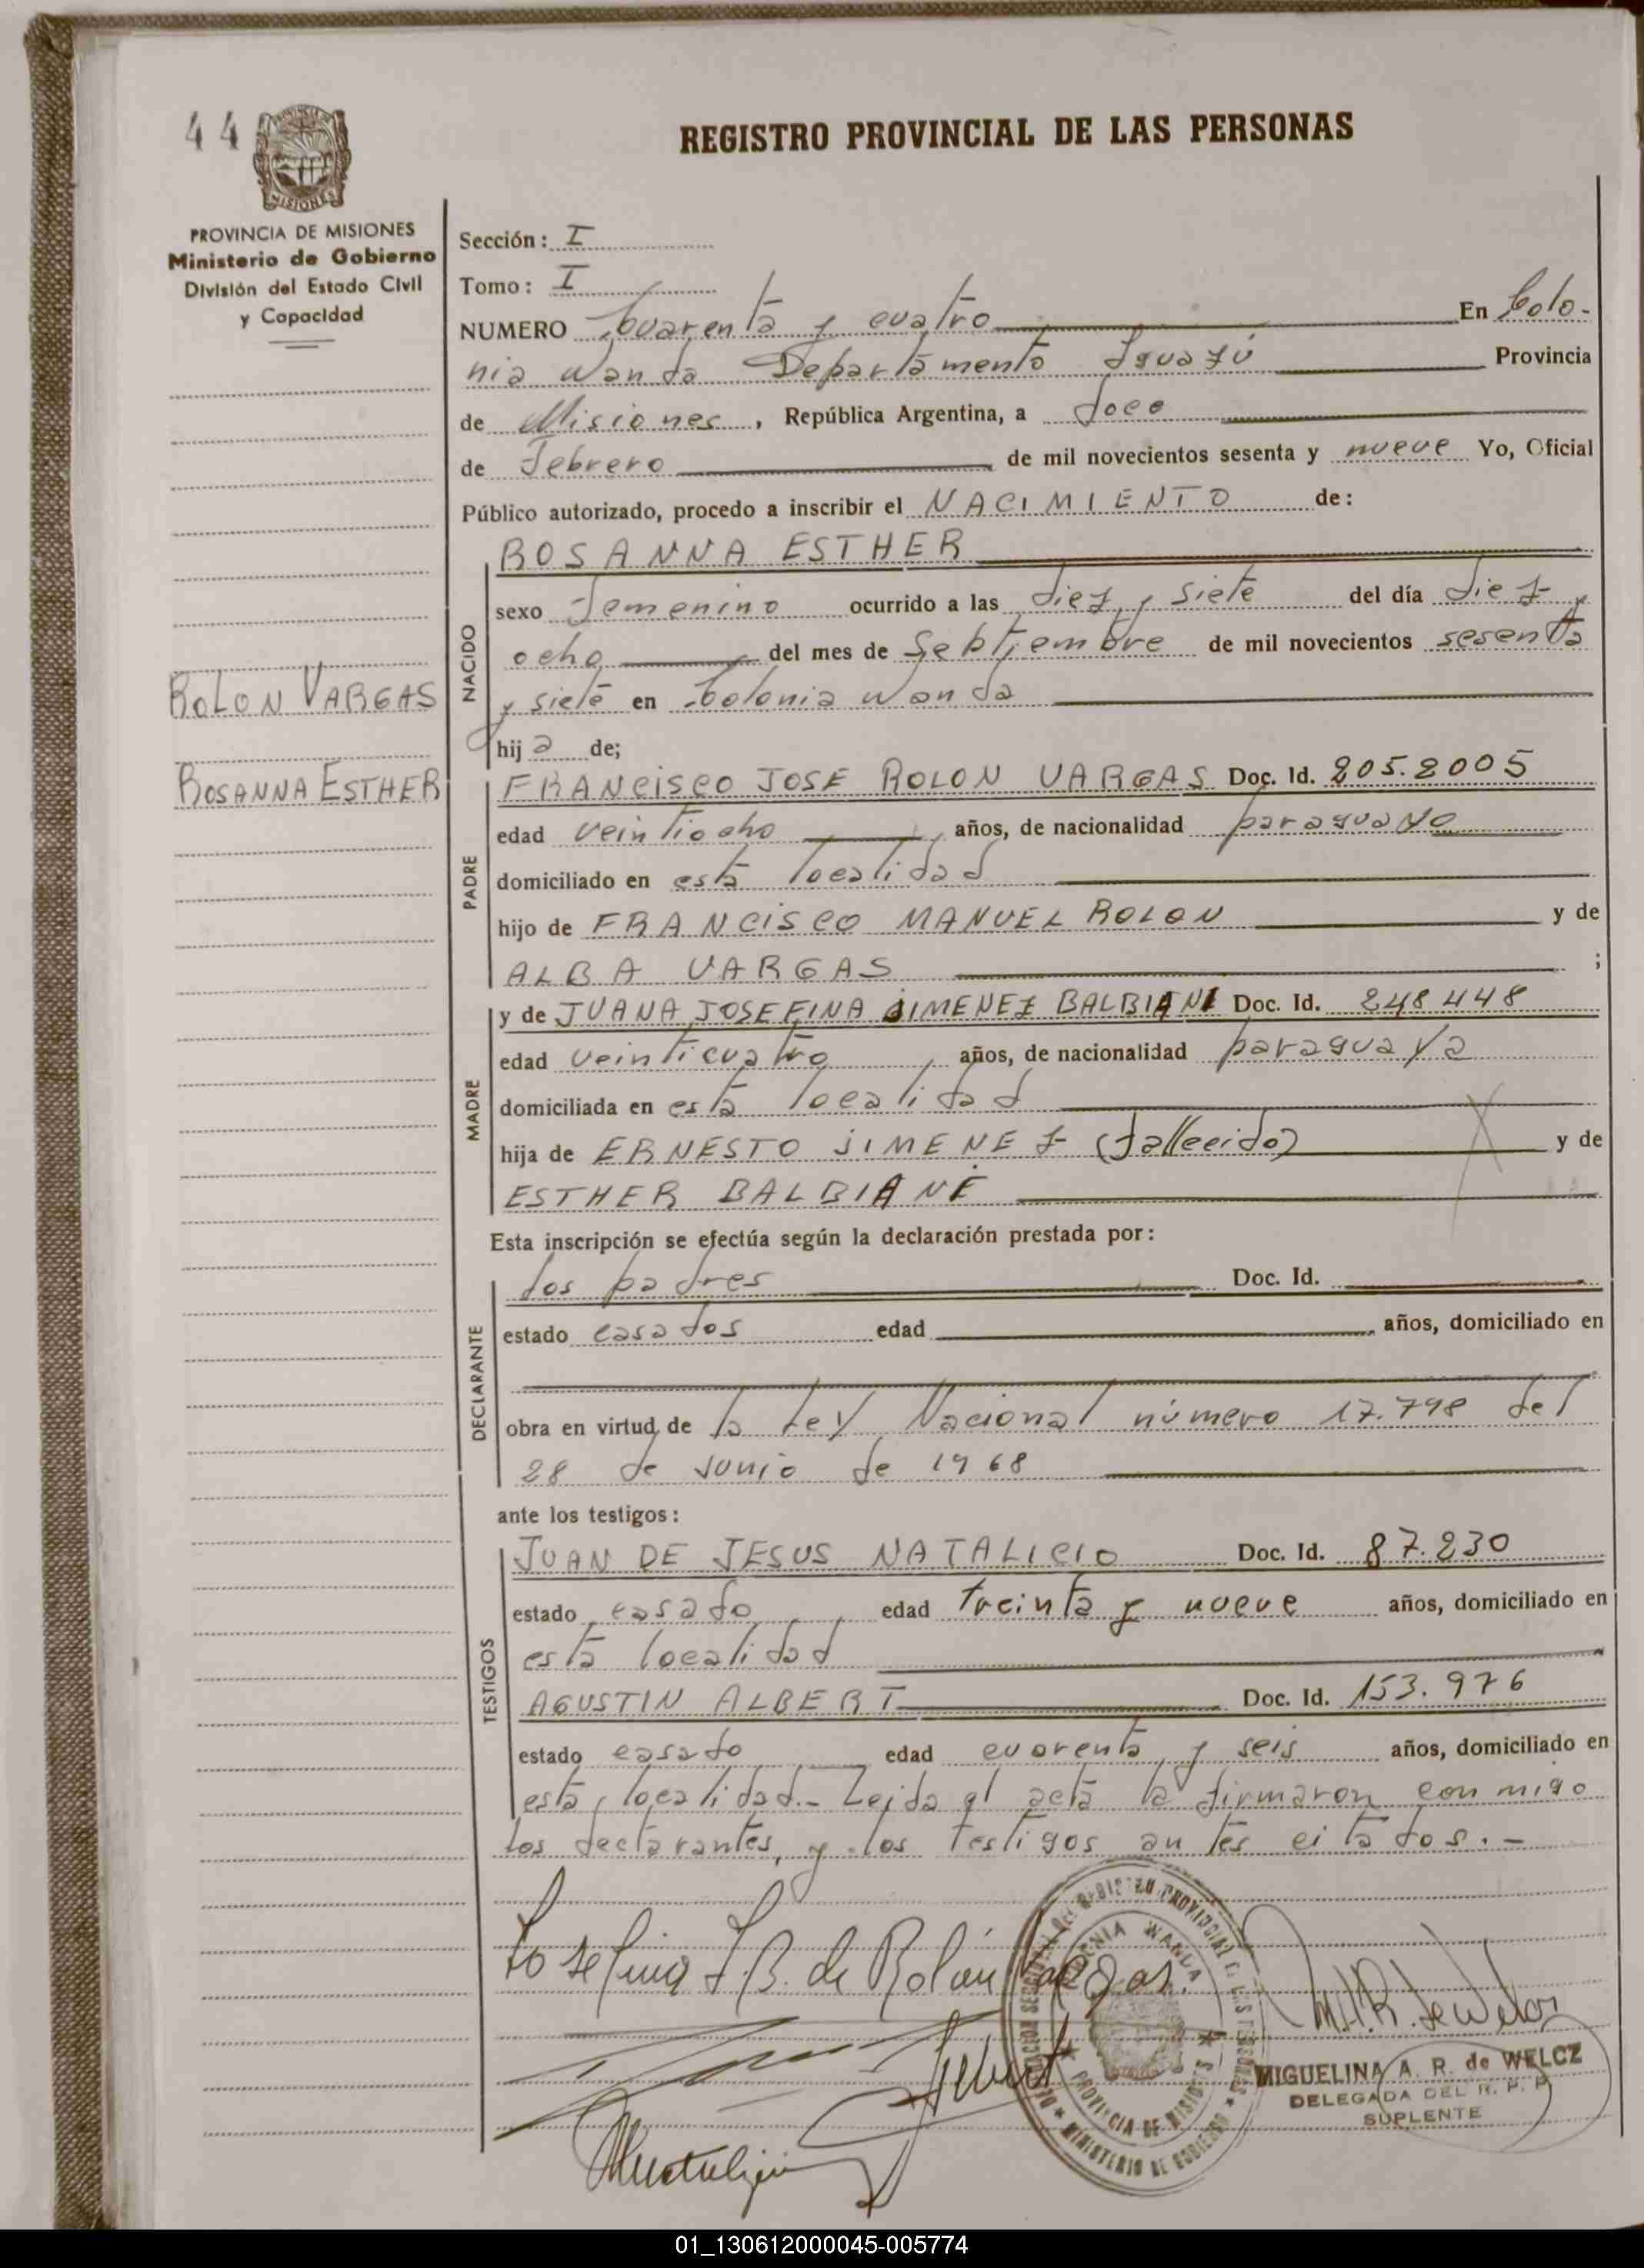 44
REGISTRO PROVINCIAL DE LAS PERSONAS
MISIONES
PROVINCIA DE MISIONES
Ministerio de Gobierno
División del Estado Civil
y Capacidad
ROLON VARGAS
ROSANNA ESTHER
Sección: I
Tomo: I
NUMERO Cuarenta y cuatro En Colo-
nia Wanda Departamento Iguazú Provincia
de Misiones, República Argentina, a doce
de Febrero de mil novecientos sesenta y nueve Yo, Oficial
Público autorizado, procedo a inscribir el NACIMIENTO de:
NACIDO
ROSANNA ESTHER
sexo Femenino ocurrido a las diez y siete del día diez y
ocho del mes de Septiembre de mil novecientos sesenta
y siete en Colonia Wanda
hija de;
PADRE
FRANCISCO JOSE ROLON VARGAS Doc. Id. 205.2005
edad veintiocho años, de nacionalidad paraguayo
domiciliado en esta localidad
hijo de FRANCISCO MANUEL ROLON y de
ALBA VARGAS ;
MADRE
y de JUANA JOSEFINA JIMENEZ BALBIANI Doc. Id. 248448
edad veinticuatro años, de nacionalidad paraguaya
domiciliada en esta localidad
hija de ERNESTO JIMENEZ (fallecido) y de
ESTHER BALBIANE
Esta inscripción se efectúa según la declaración prestada por:
DECLARANTE
los padres Doc. Id.
estado casados edad años, domiciliado en
obra en virtud de la Ley Nacional número 17.798 del
28 de Junio de 1968
ante los testigos:
TESTIGOS
JUAN DE JESUS NATALICIO Doc. Id. 87.230
estado casado edad treinta y nueve años, domiciliado en
esta localidad
AGUSTIN ALBERT Doc. Id. 153.976
estado casado edad cuarenta y seis años, domiciliado en
esta localidad.- Leida el acta la firmaron conmigo
los declarantes, y los testigos antes citados.-
Josefina J.B. de Rolón Vargas.
COLONIA WANDA
PROVINCIA DE MISIONES
MINISTERIO DE GOBIERNO
M.A.R. de Welcz
MIGUELINA A. R. de WELCZ
DELEGADA DEL R. P. P.
SUPLENTE
01_130612000045-005774